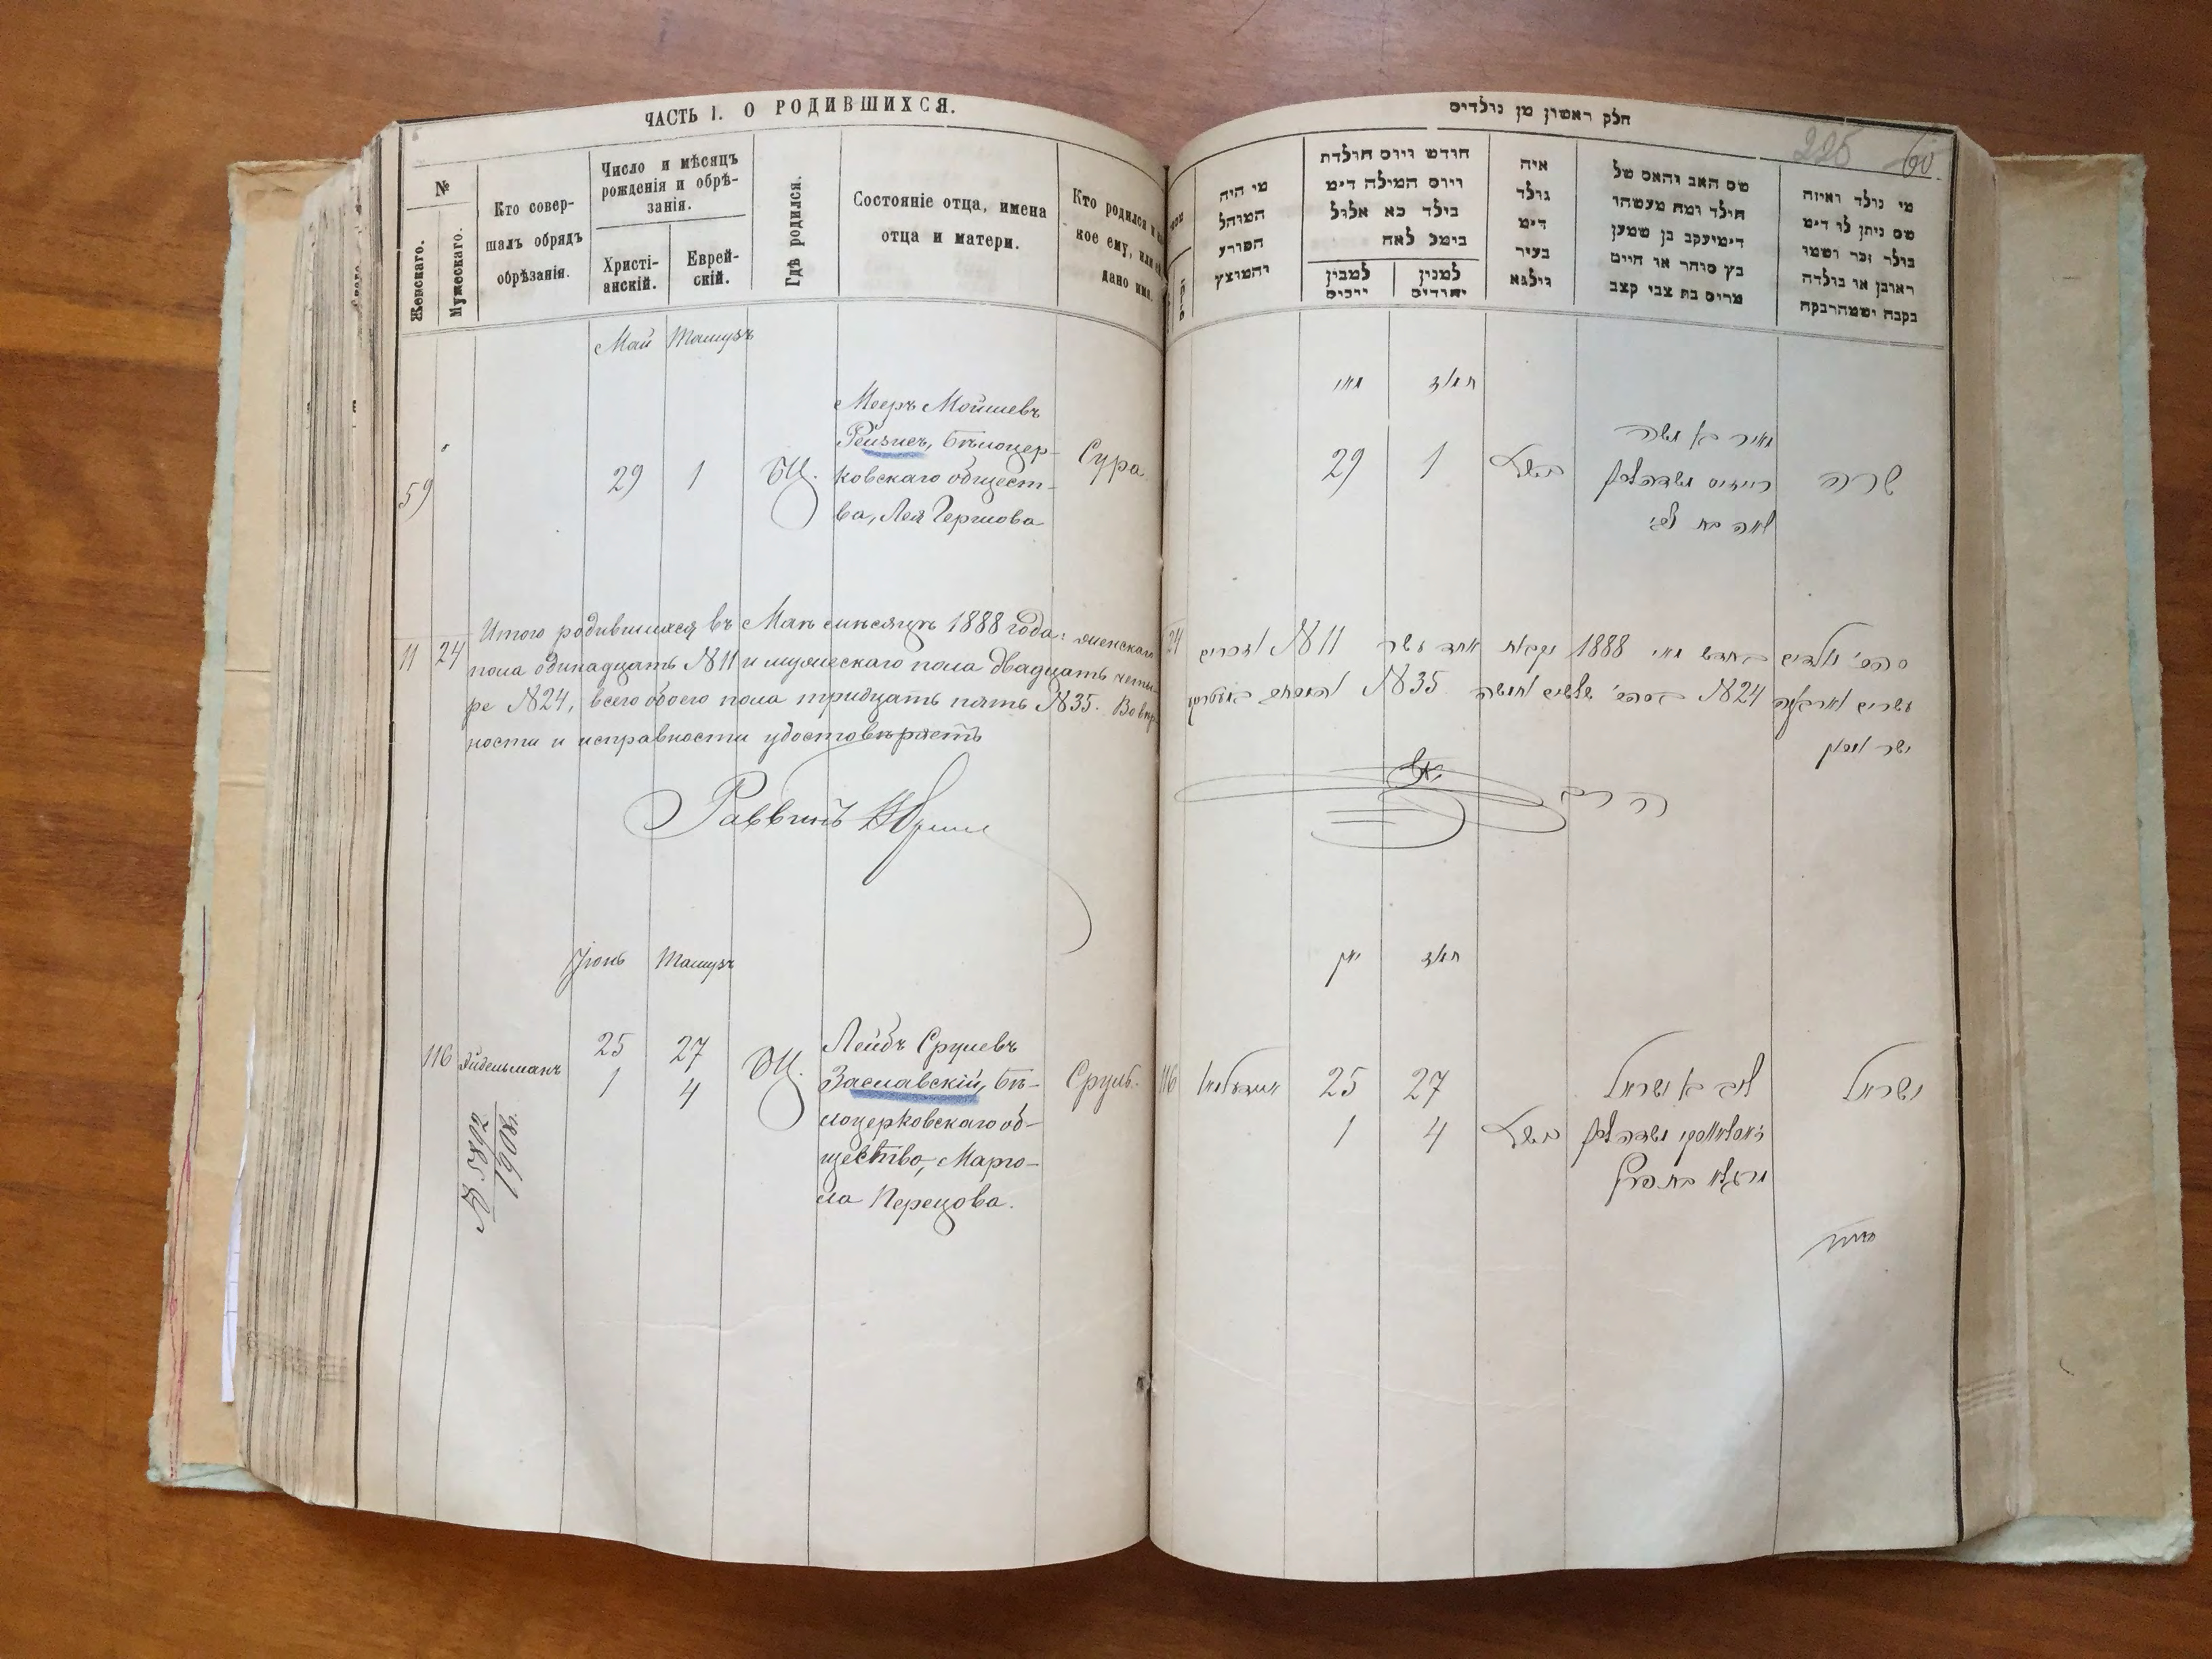 ЧАСТЬ I. О РОДИВШИХСЯ.
№
Женскаго.
Мужескаго.
Кто совер-
шалъ обрядъ
обрѣзанія.
Число и мѣсяцъ
рожденія и обрѣ-
занія.
Христі-
анскій.
Еврей-
скій.
Гдѣ родился.
Состояніе отца, имена
отца и матери.
Кто родился и
кое ему, или
дано имя.
Май Тамузъ
59
29 1 БЦ.
Мееръ Мойшевъ
Рейзисъ, Бѣлоцер-
ковскаго общест-
ва, Лея Гершова
Сура
11 24
Итого родившихся въ Маѣ мѣсяцѣ 1888 года: женскаго
пола одинадцать №11 и мужескаго пола двадцать четы-
ре №24, всего обоего пола тридцать пять №35. Въ вѣр-
ности и исправности удостовѣряетъ
Раввинъ
Іюнь Тамузъ
116 Эйдельманъ
25 27
1 4
БЦ.
Лейбъ Срулевъ
Заславскій, Бѣ-
лоцерковскаго об-
щества, Марго-
ла Перецова.
Сруль.
№ 5892
1908г.
חלק ראשון מן נולדים
226 60.
מי היה
המוהל
הפורע
והמוצץ
חודש ויום הולדת
ויום המילה דימ
בילד כא אלול
בימל לאח
למנין
יהודים
איה
נולד
דימ
בעיר
ווילנא
שם האב והאם של
הילד ומה מעשהו
דימיעקב בן שמען
בץ סוחר או חיים
מרים בת צבי קצב
מי נולד ואיזה
שם ניתן לו דימ
נולד זכר ושמו
ראובן או נולדה
נקבה ושמהרבקה
מאי תמוז
29 1
מאיר בן משה
לאה בת צבי
שרה
24
סהכ׳ נולדים בחדש מאי 1888 נקבות אחד עשר №11 וזכרים
עשרים וארבעה №24 בסהכ׳ שלשים וחמשה №35
יוני תמוז
116 איידעלמאן
25 27
1 4
ליב בן ישראל
מרגלא בת פרץ
ישראל